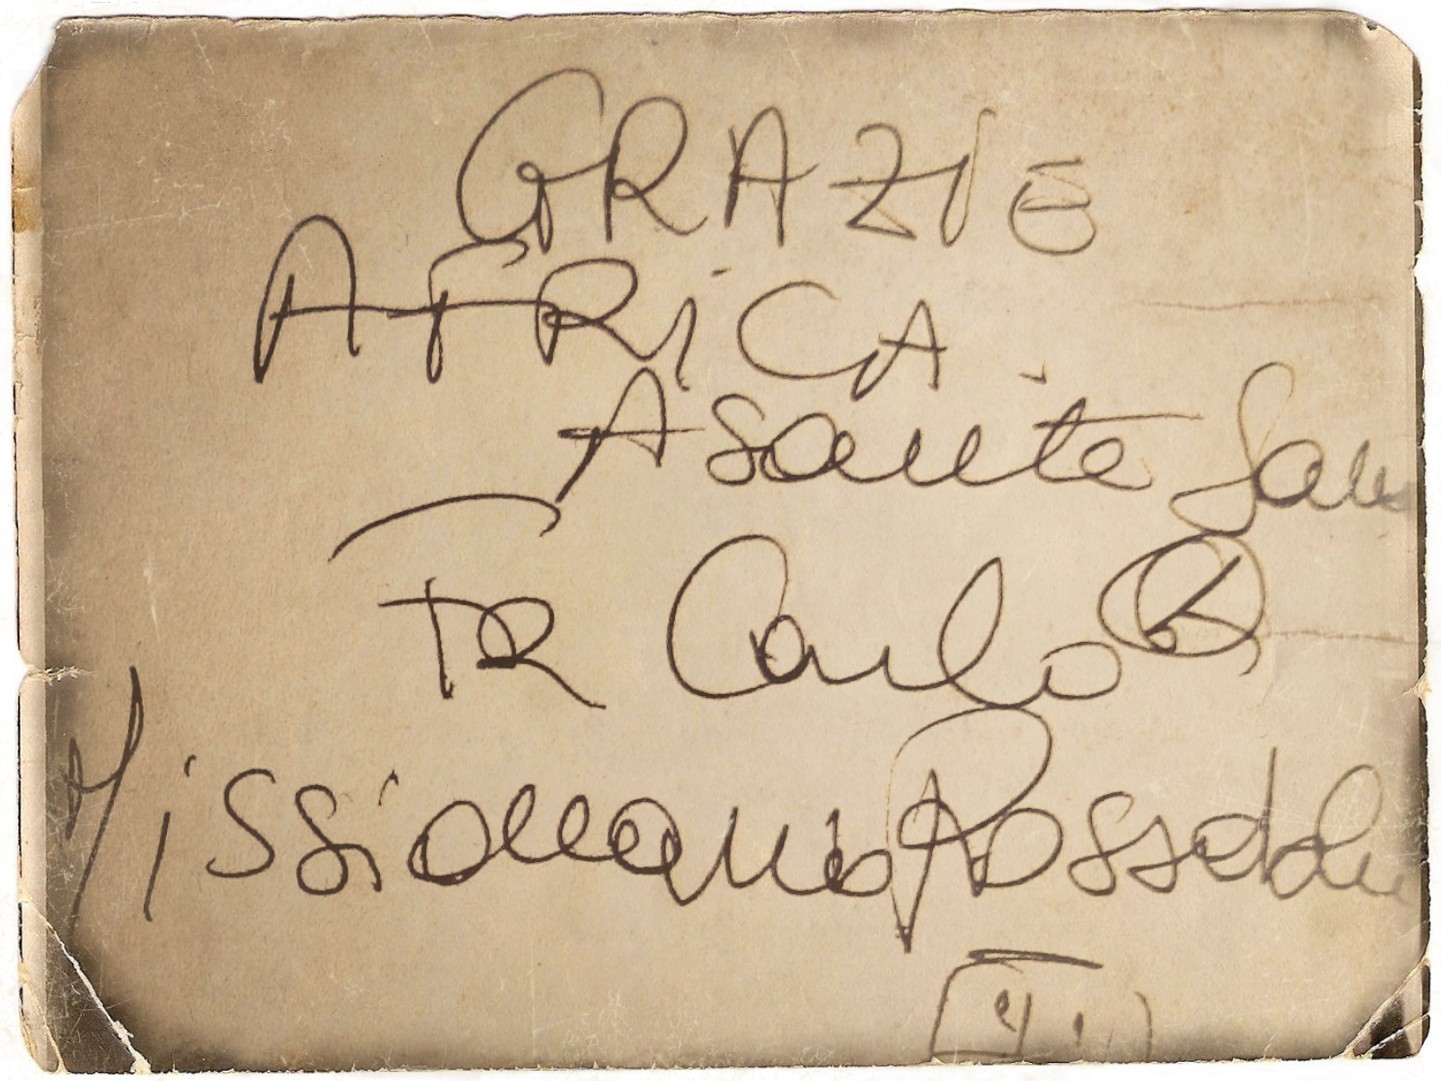 GRAZIE
AFRiCA
Asante San
FR Carlo
Missionario